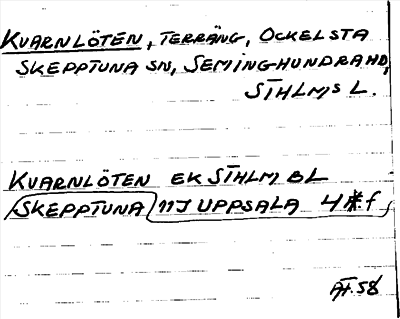 KVARNLÖTEN, TERRÄNG, OCKELSTA
SKEPPTUNA SN, SEMINGHUNDRA HD,
STHLMS L.
KVARNLÖTEN EK STHLM BL
SKEPPTUNA 11I UPPSALA 4*f
ÅF.58